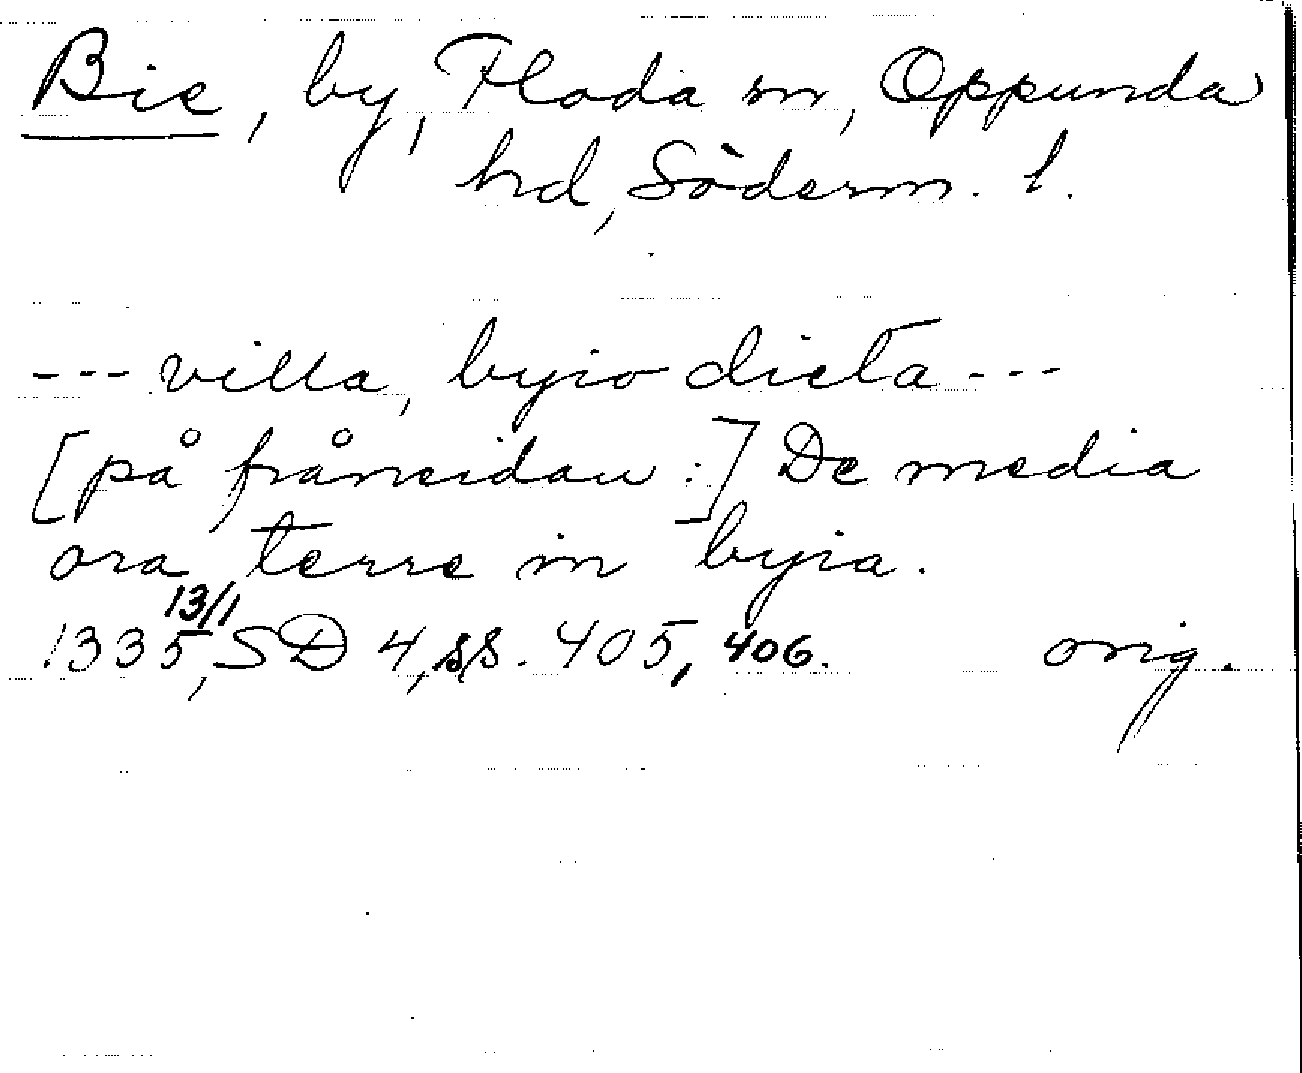 Bie, by, Floda sn, Oppunda
hd, Söderm. l.
--- villa, byio dicta ---
[på frånsidan :] De media
ora terre in byia.
1335 13/1, SD 4, ss. 405, 406. orig.